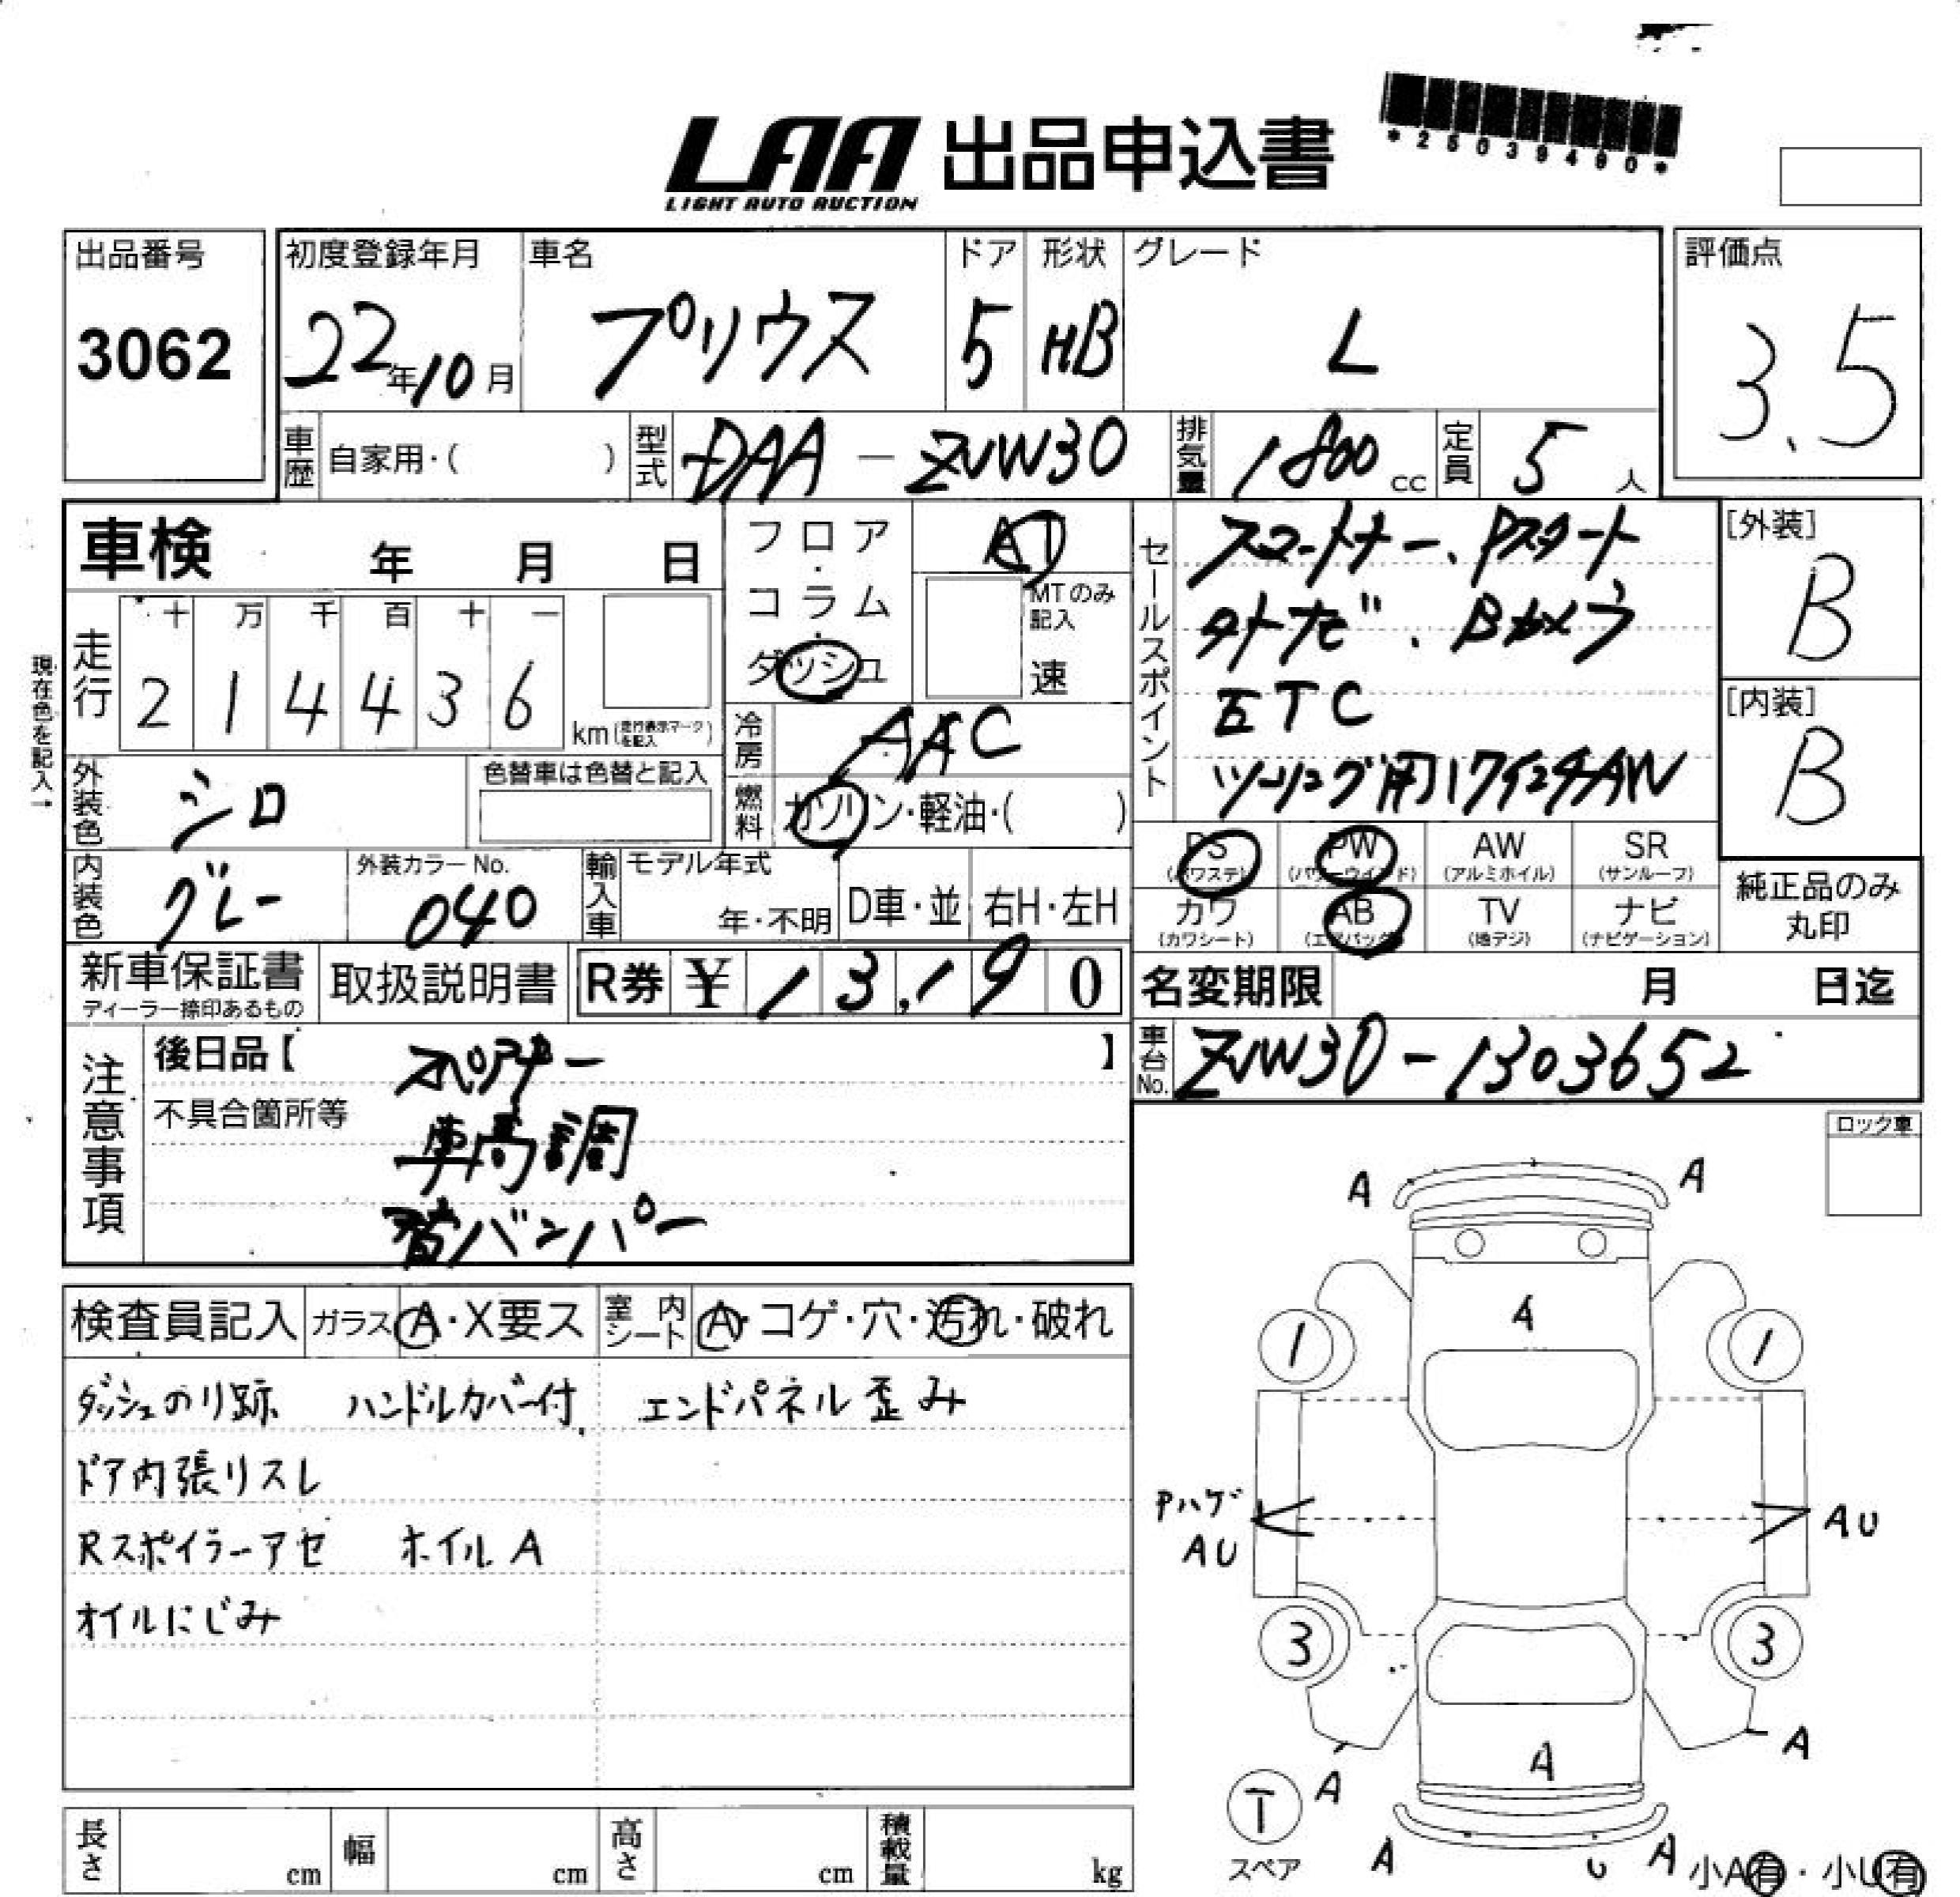 LAA 出品申込書
LIGHT AUTO AUCTION
*25039490*
出品番号
3062
初度登録年月
22年10月
車名
プリウス
ドア
5
形状
HB
グレード
L
評価点
3.5
車歴 自家用・( )
型式 DAA-ZVW30
排気量 1800 cc
定員 5 人
車検 年 月 日
フロア・コラム・ダッシュ
AT
MTのみ記入
速
セールスポイント
スマートキー、Pスタート
外ナビ、Bカメラ
ETC
ツーリング用17インチAW
[外装]
B
[内装]
B
現在色を記入→
走行
十 万 千 百 十 一
2 1 4 4 3 6
km(走行表示マークを記入)
冷房 AAC
燃料 ガソリン・軽油・( )
外装色 シロ
色替車は色替と記入
内装色 グレー
外装カラーNo.
040
輸入車
モデル年式
年・不明
D車・並
右H・左H
PS (パワステ)
PW (パワーウインド)
AW (アルミホイル)
SR (サンルーフ)
カワ (カワシート)
AB (エアバッグ)
TV (地デジ)
ナビ (ナビゲーション)
純正品のみ丸印
新車保証書
ディーラー捺印あるもの
取扱説明書
R券 ¥13,190
名変期限 月 日迄
車台No. ZVW30-1303652
注意事項
後日品【 】
不具合箇所等
車高調
バンパー
ロック車
検査員記入
ガラス A・X要ス
室内シート A・コゲ・穴・汚れ・破れ
ダッシュのり跡 ハンドルカバー付 エンドパネル歪み
ドア内張りスレ
Rスポイラーアセ ホイルA
オイルにじみ
A A
A
1 1
Pハゲ
AU
AU
3 3
A
A
A
T
スペア
A U A
小A有・小U有
長さ cm
幅 cm
高さ cm
積載量 kg